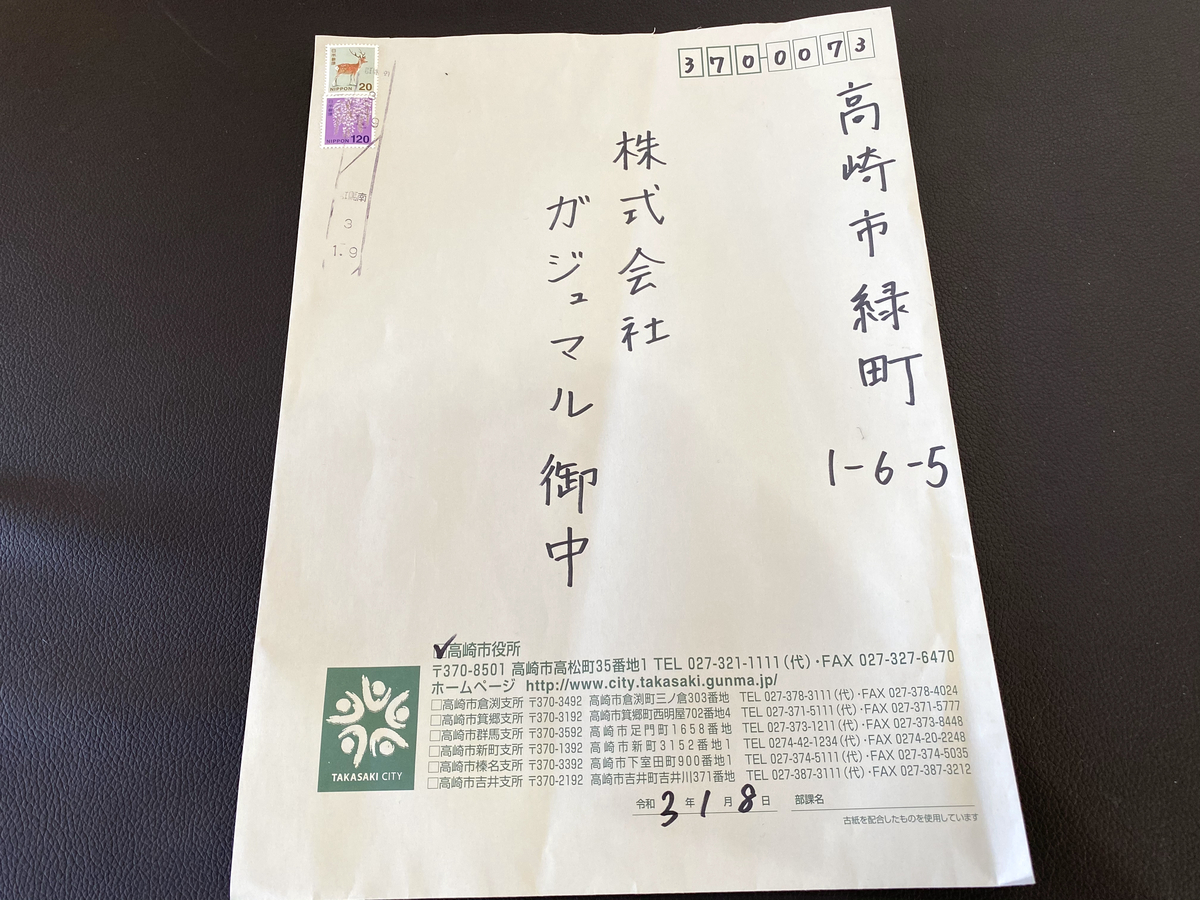 370-0073
高崎市緑町
1-6-5
株式会社
ガジュマル 御中
NIPPON 20
NIPPON 120
南
3
1. 9
☑高崎市役所
〒370-8501 高崎市高松町35番地1 TEL 027-321-1111(代)・FAX 027-327-6470
ホームページ http://www.city.takasaki.gunma.jp/
□高崎市倉渕支所 〒370-3492 高崎市倉渕町三ノ倉303番地 TEL 027-378-3111(代)・FAX 027-378-4024
□高崎市箕郷支所 〒370-3192 高崎市箕郷町西明屋702番地4 TEL 027-371-5111(代)・FAX 027-371-5777
□高崎市群馬支所 〒370-3592 高崎市足門町1658番地 TEL 027-373-1211(代)・FAX 027-373-8448
□高崎市新町支所 〒370-1392 高崎市新町3152番地1 TEL 0274-42-1234(代)・FAX 0274-20-2248
□高崎市榛名支所 〒370-3392 高崎市下室田町900番地1 TEL 027-374-5111(代)・FAX 027-374-5035
□高崎市吉井支所 〒370-2192 高崎市吉井町吉井川371番地 TEL 027-387-3111(代)・FAX 027-387-3212
TAKASAKI CITY
令和 3 年 1 月 8 日 部課名
古紙を配合したものを使用しています